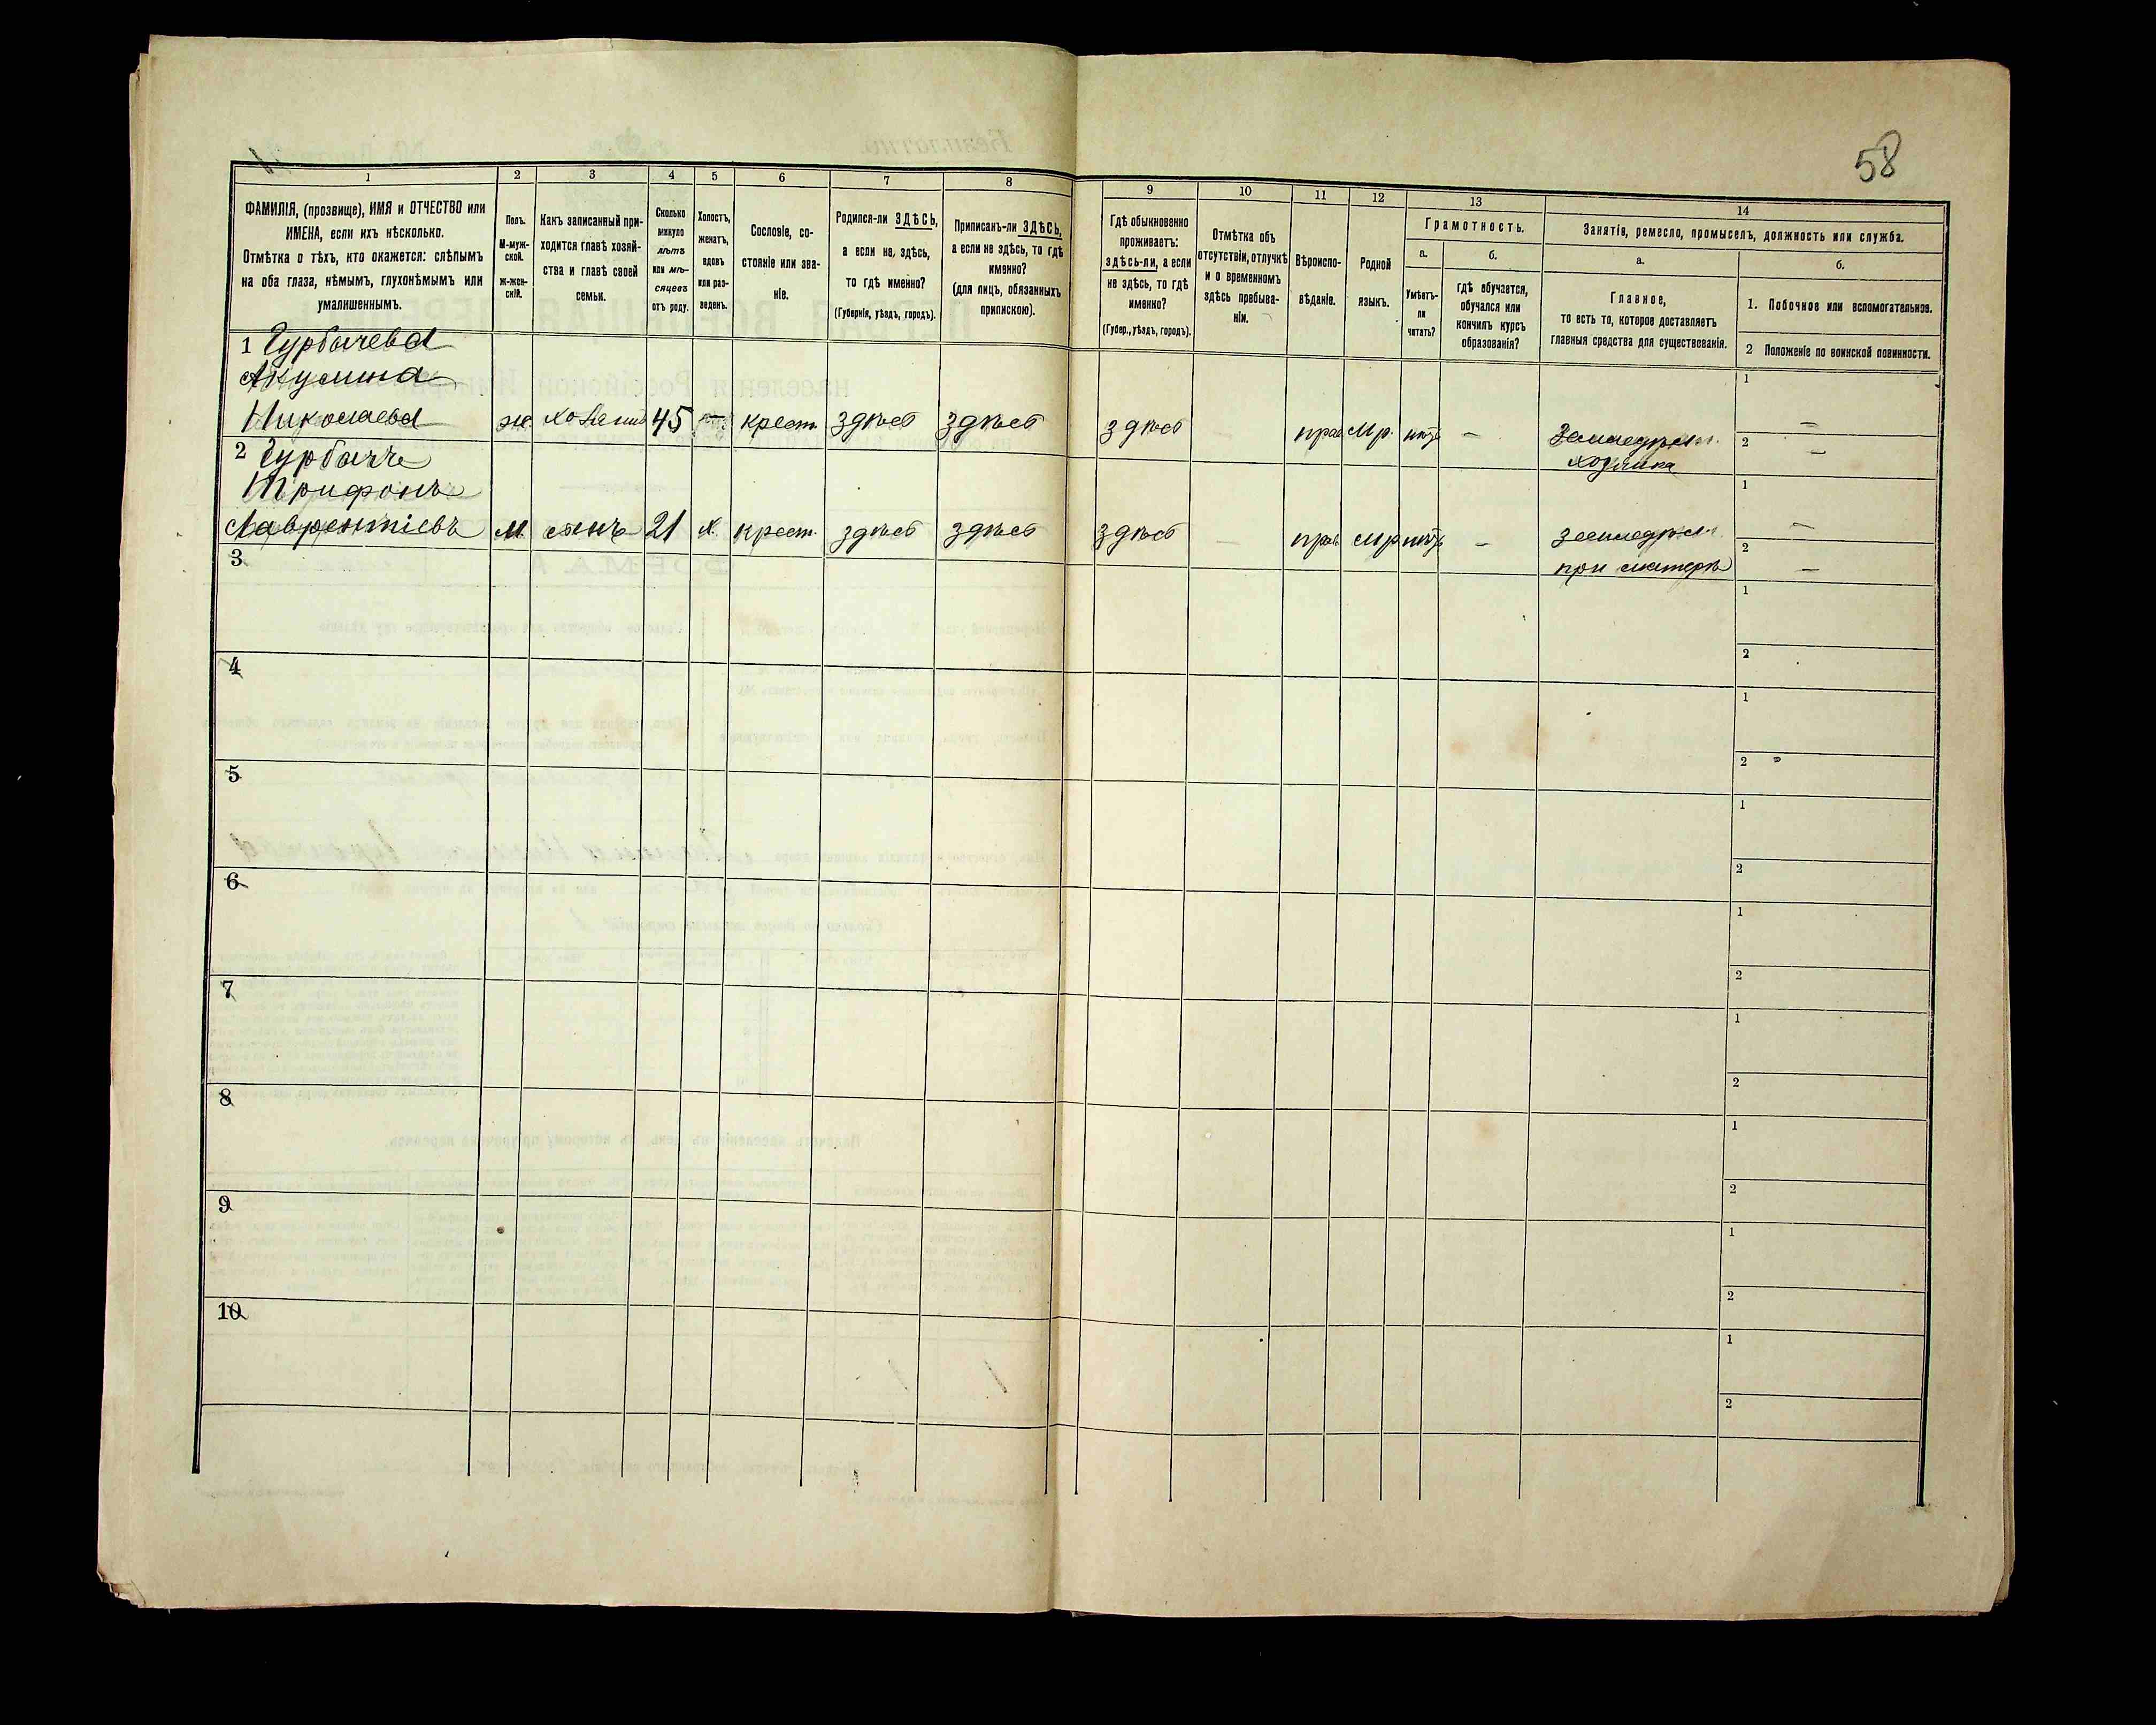 58
1 2 3 4 5 6 7 8 9 10 11 12 13 14
ФАМИЛІЯ, (прозвище), ИМЯ и ОТЧЕСТВО или
ИМЕНА, если ихъ нѣсколько.
Отмѣтка о тѣхъ, кто окажется: слѣпымъ
на оба глаза, нѣмымъ, глухонѣмымъ или
умалишеннымъ.
Полъ.
М-муж-
ской.
ж-жен-
скій.
Какъ записанный при-
ходится главѣ хозяй-
ства и главѣ своей
семьи.
Сколько
минуло
лѣтъ
или мѣ-
сяцевъ
отъ роду.
Холостъ,
женатъ,
вдовъ
или раз-
веденъ.
Сословіе, со-
стояніе или зва-
ніе.
Родился-ли ЗДѢСЬ,
а если не здѣсь,
то гдѣ именно?
(Губернія, уѣздъ, городъ).
Приписанъ-ли ЗДѢСЬ,
а если не здѣсь, то гдѣ
именно?
(для лицъ, обязанныхъ
припискою).
Гдѣ обыкновенно
проживаетъ:
здѣсь-ли, а если
не здѣсь, то гдѣ
именно?
(Губер., уѣздъ, городъ).
Отмѣтка объ
отсутствіи, отлучкѣ
и о временномъ
здѣсь пребыва-
ніи.
Вѣроиспо-
вѣданіе.
Родной
языкъ.
Грамотность.
а.
Умѣетъ-
ли
читать?
б.
гдѣ обучается,
обучался или
кончилъ курсъ
образованія?
Занятія, ремесло, промыселъ, должность или служба.
а.
Главное,
то есть то, которое доставляетъ
главныя средства для существованія.
б.
1. Побочное или вспомогательное.
2 Положеніе по воинской повинности.
1 Гурбичева
Акулина
Николаева ж. хозяйка 45 — крест. здѣсь здѣсь здѣсь — прав. Мр. нѣтъ — Земледѣл. 1 —
хозяйка 2 —
2 Гурбичъ
Трифонъ
Лаврентіевъ М. сынъ 21 х. крест. здѣсь здѣсь здѣсь — прав. Мр нѣтъ — Земледѣл. 1 —
при матерѣ 2 —
3 1
2
4 1
2
5 1
2
6 1
2
7 1
2
8 1
2
9 1
2
10 1
2